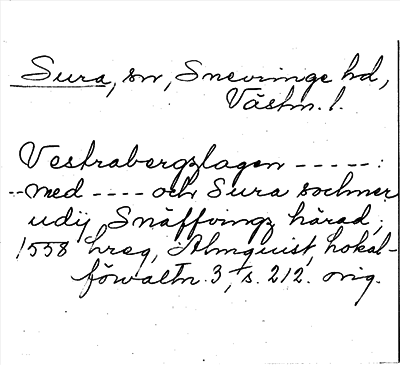 Sura, sn, Snevringe hd,
Västm. l.
Vestrabergzlagen - - - - - :
-- med - - - - och Sura sochner
udij Snäffringz härad,
1558 hreg, Almquist, Lokal-
förvaltn. 3, s. 212. orig.